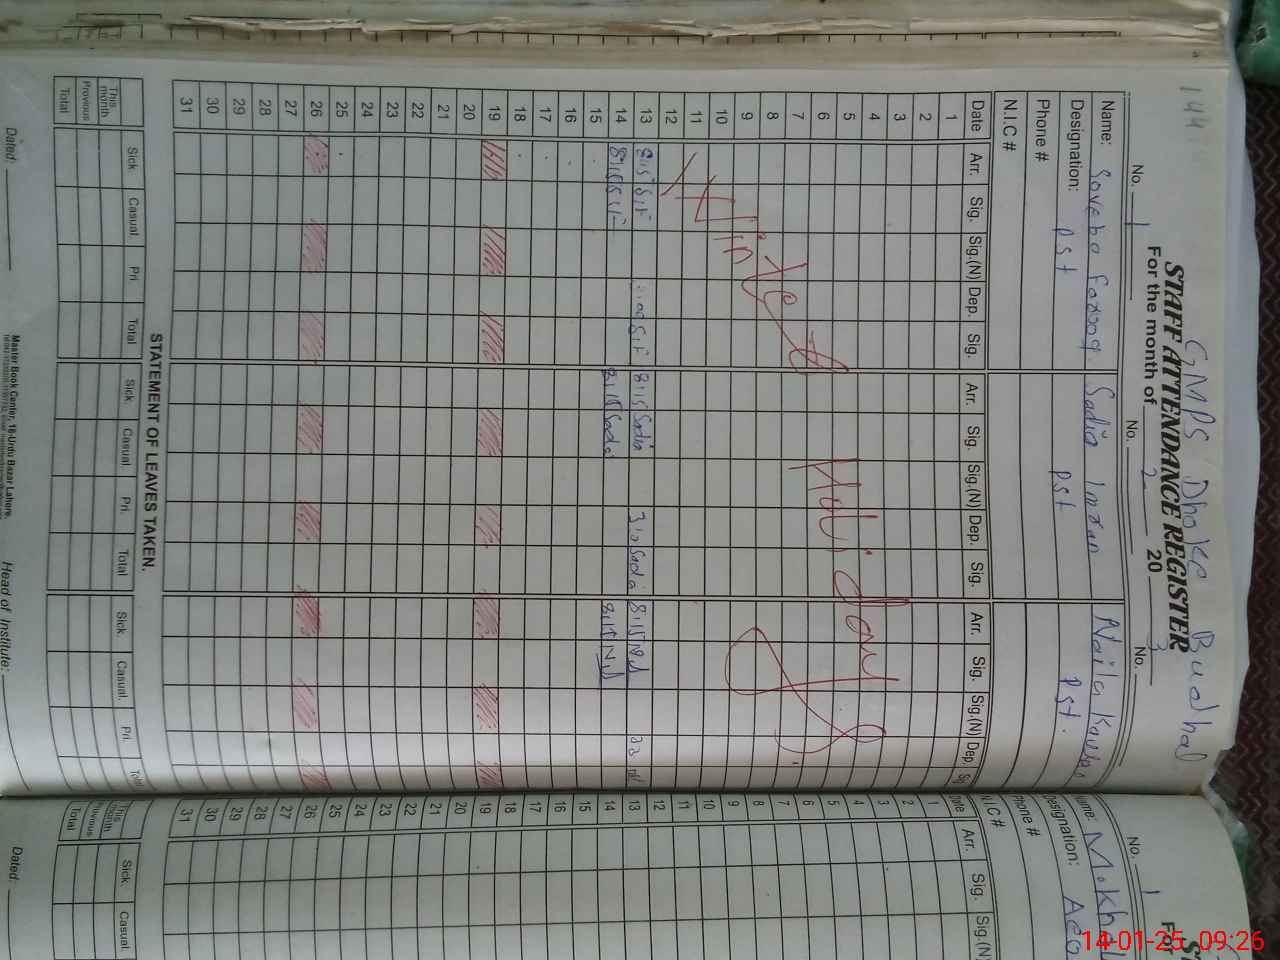 GMPS Dhoke Budhal
STAFF ATTENDANCE REGISTER
For the month of 20
No. 1 No. 2 No. 3
Name: Savera Farooq Sadia Imran Naila Kausar
Designation: PST PST PST.
Phone #
N.I.C #
Date Arr. Sig. Sig.(N) Dep. Sig. Arr. Sig. Sig.(N) Dep. Sig. Arr. Sig. Sig.(N) Dep. Sig
1
2
3
4
5
6
7
8
9
10
11
12
Winter Holiday
13 8:15 8:15 Sadia 3:0 Sadia 8:15
14 8:15 8:15 Sadia 8:15
15
16
17
18
19
20
21
22
23
24
25
26
27
28
29
30
31
STATEMENT OF LEAVES TAKEN.
Sick. Casual. Pri Total Sick. Casual. Pri. Total Sick. Casual. Pri. Total
This month
Previous
Total
Master Book Center, 16-Urdu Bazar Lahore.
Dated: Head of Institute:
No. 1 For
Name: M. Kha
Designation:
Phone #
N.I.C #
Date Arr. Sig. Sig.(N)
1
2
3
4
5
6
7
8
9
10
11
12
13
14
15
16
17
18
19
20
21
22
23
24
25
26
27
28
29
30
31
Sick Casual.
This month
Previous
Total
Dated:
14-01-25 09:26